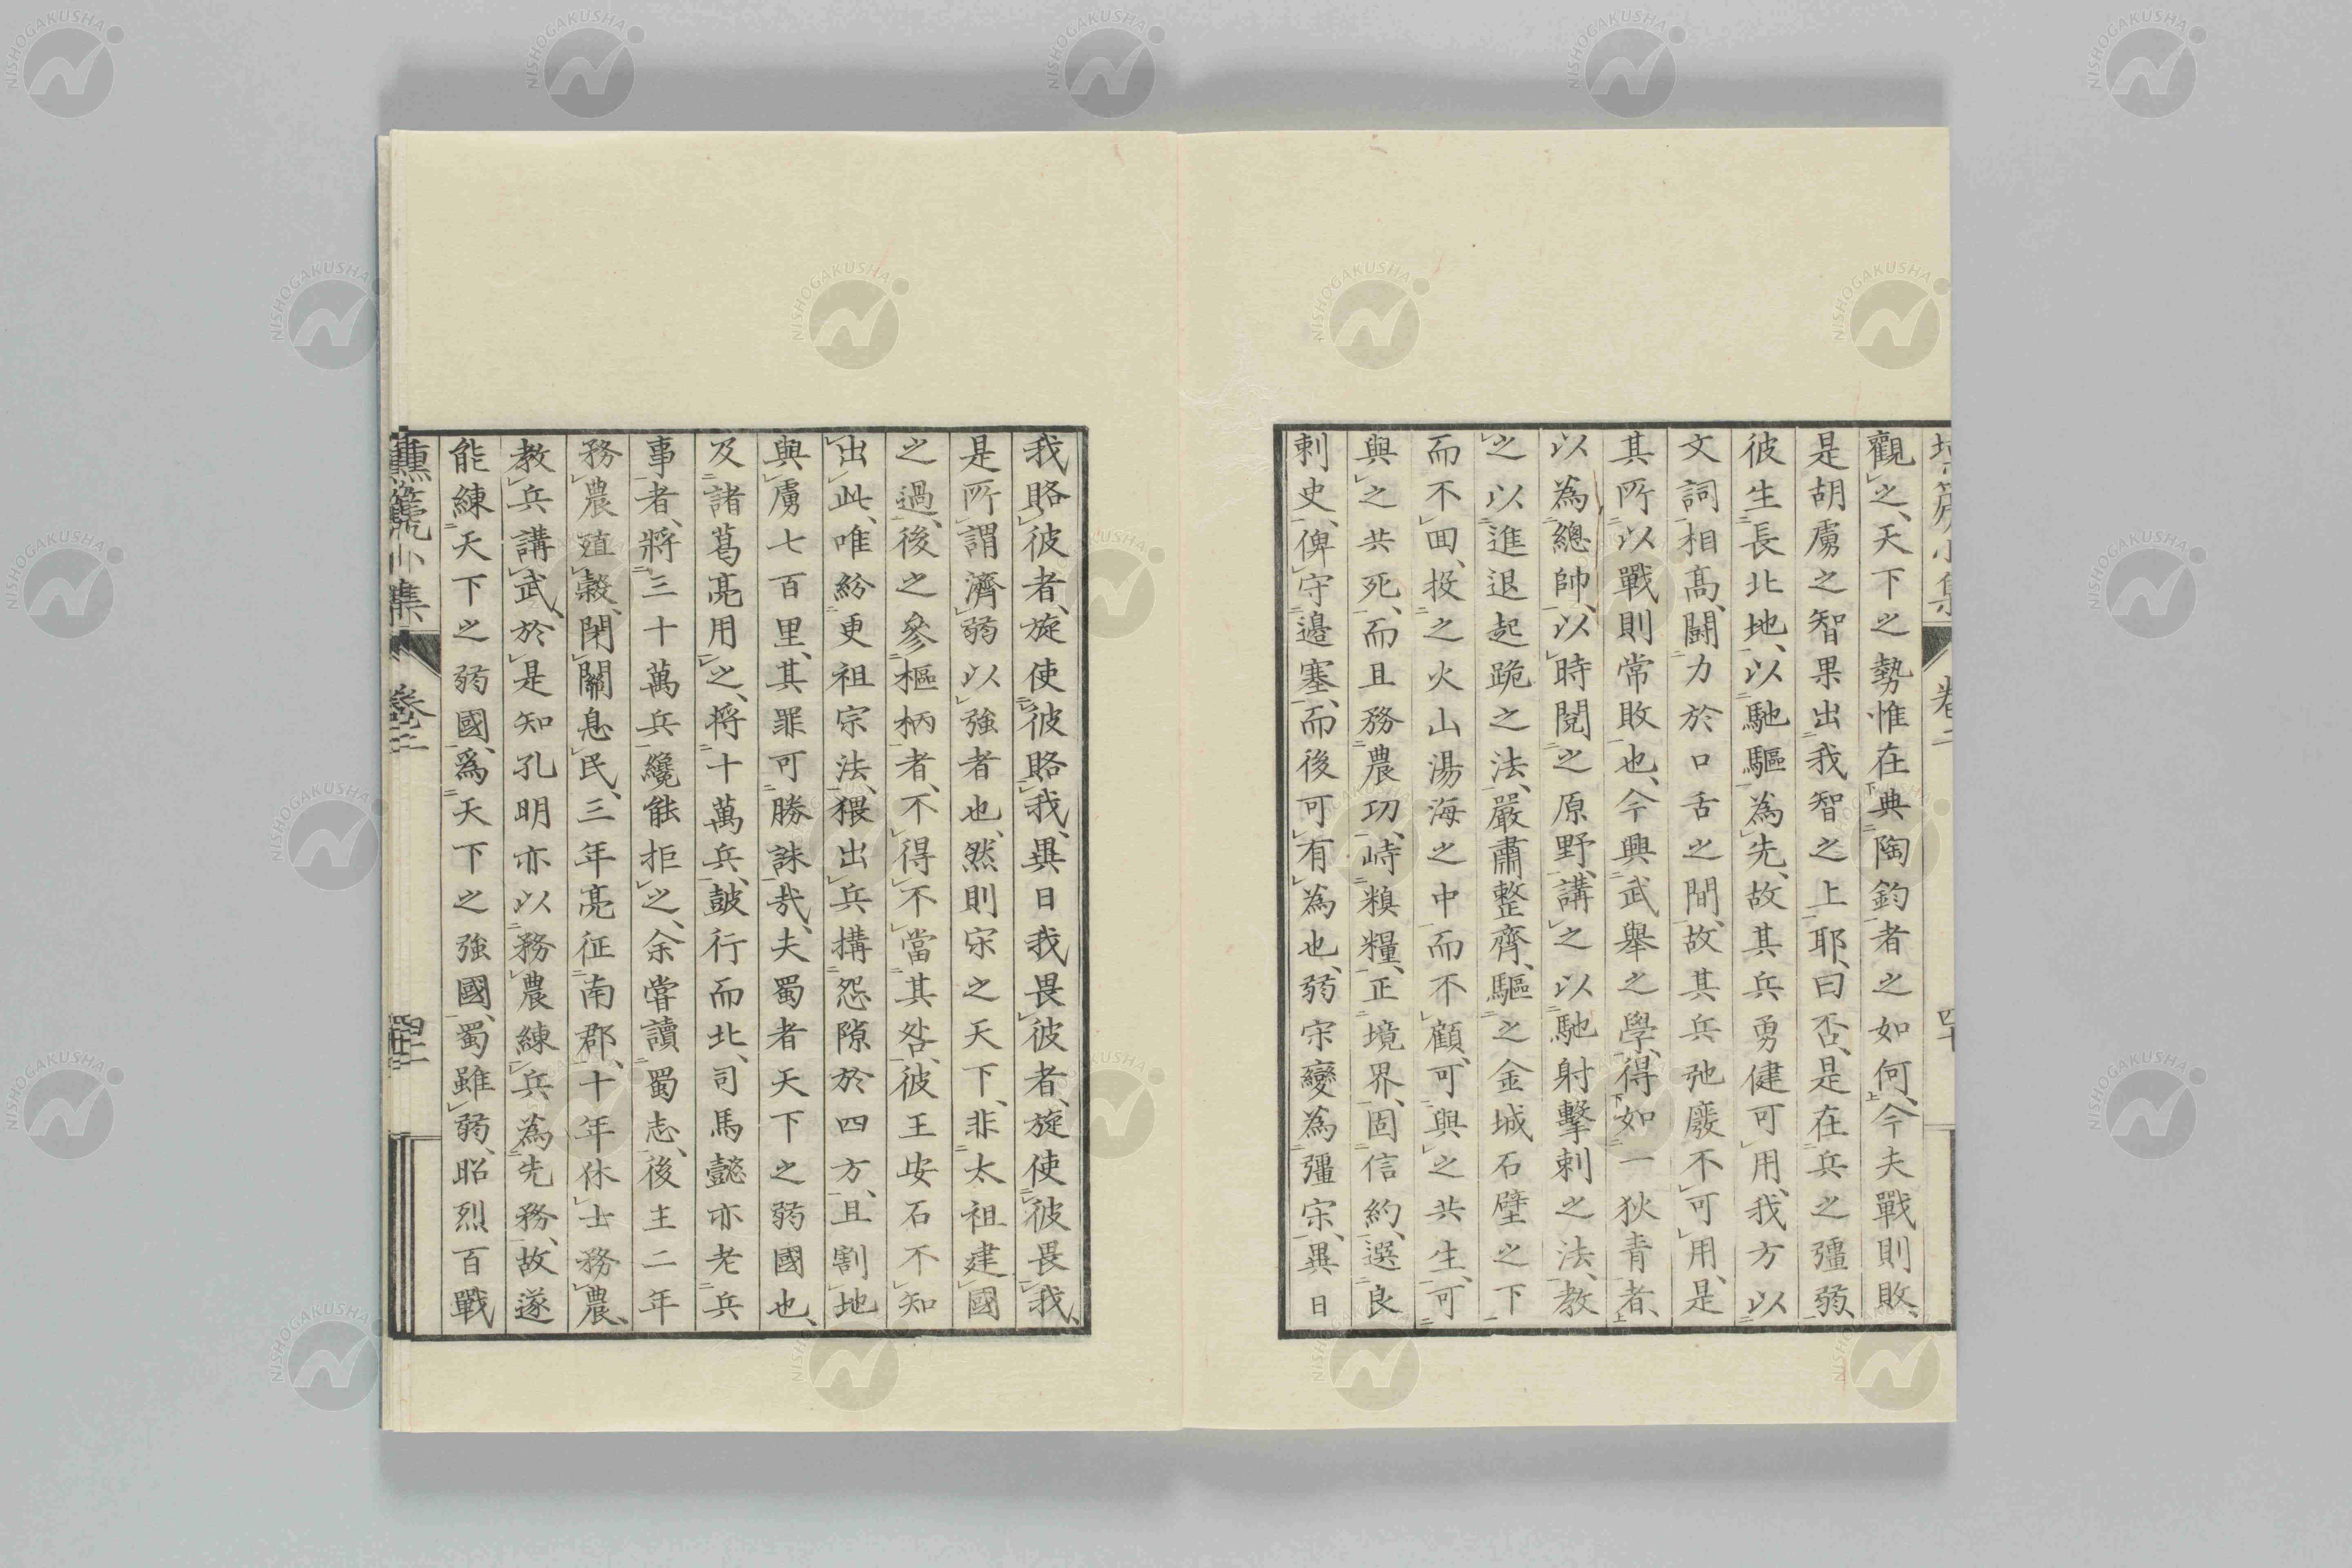 觀之、天下之勢惟在典陶鈞者之如何、今夫戰則敗、
是胡虜之智果出我智之上耶、曰否、是在兵之彊弱、
彼生長北地、以馳驅為先、故其兵勇健可用、我方以
文詞相髙、鬪力於口舌之間、故其兵弛廢不可用、是
其所以戰則常敗也、今興武舉之學、得如一狄青者、
以為總帥、以時閱之原野、講之以馳射擊刺之法、教
之以進退起跪之法、嚴肅整齊、驅之金城石壁之下
而不回、投之火山湯海之中而不顧、可與之共生、可
與之共死、而且務農功、峙糗糧、正境界、固信約、選良
刺史、俾守邊塞、而後可有為也、弱宋變為彊宋、異日
我賂彼者、旋使彼賂我、異日我畏彼者、旋使彼畏我、
是所謂濟弱以強者也、然則宋之天下、非太祖建國
之過、後之參樞柄者、不得不當其咎、彼王安石不知
出此、唯紛更祖宗法、猥出兵搆怨隙於四方、且割地
與虜七百里、其罪可勝誅哉、夫蜀者天下之弱國也、
及諸葛亮用之、將十萬兵、鼓行而北、司馬懿亦老兵
事者、將三十萬兵纔能拒之、余嘗讀蜀志、後主二年
務農殖穀、閉關息民、三年亮征南郡、十年休士務農、
教兵講武、於是知孔明亦以務農練兵為先務、故遂
能練天下之弱國、爲天下之強國、蜀雖弱、昭烈百戰
壎篪小集
卷二
NISHOGAKUSHA